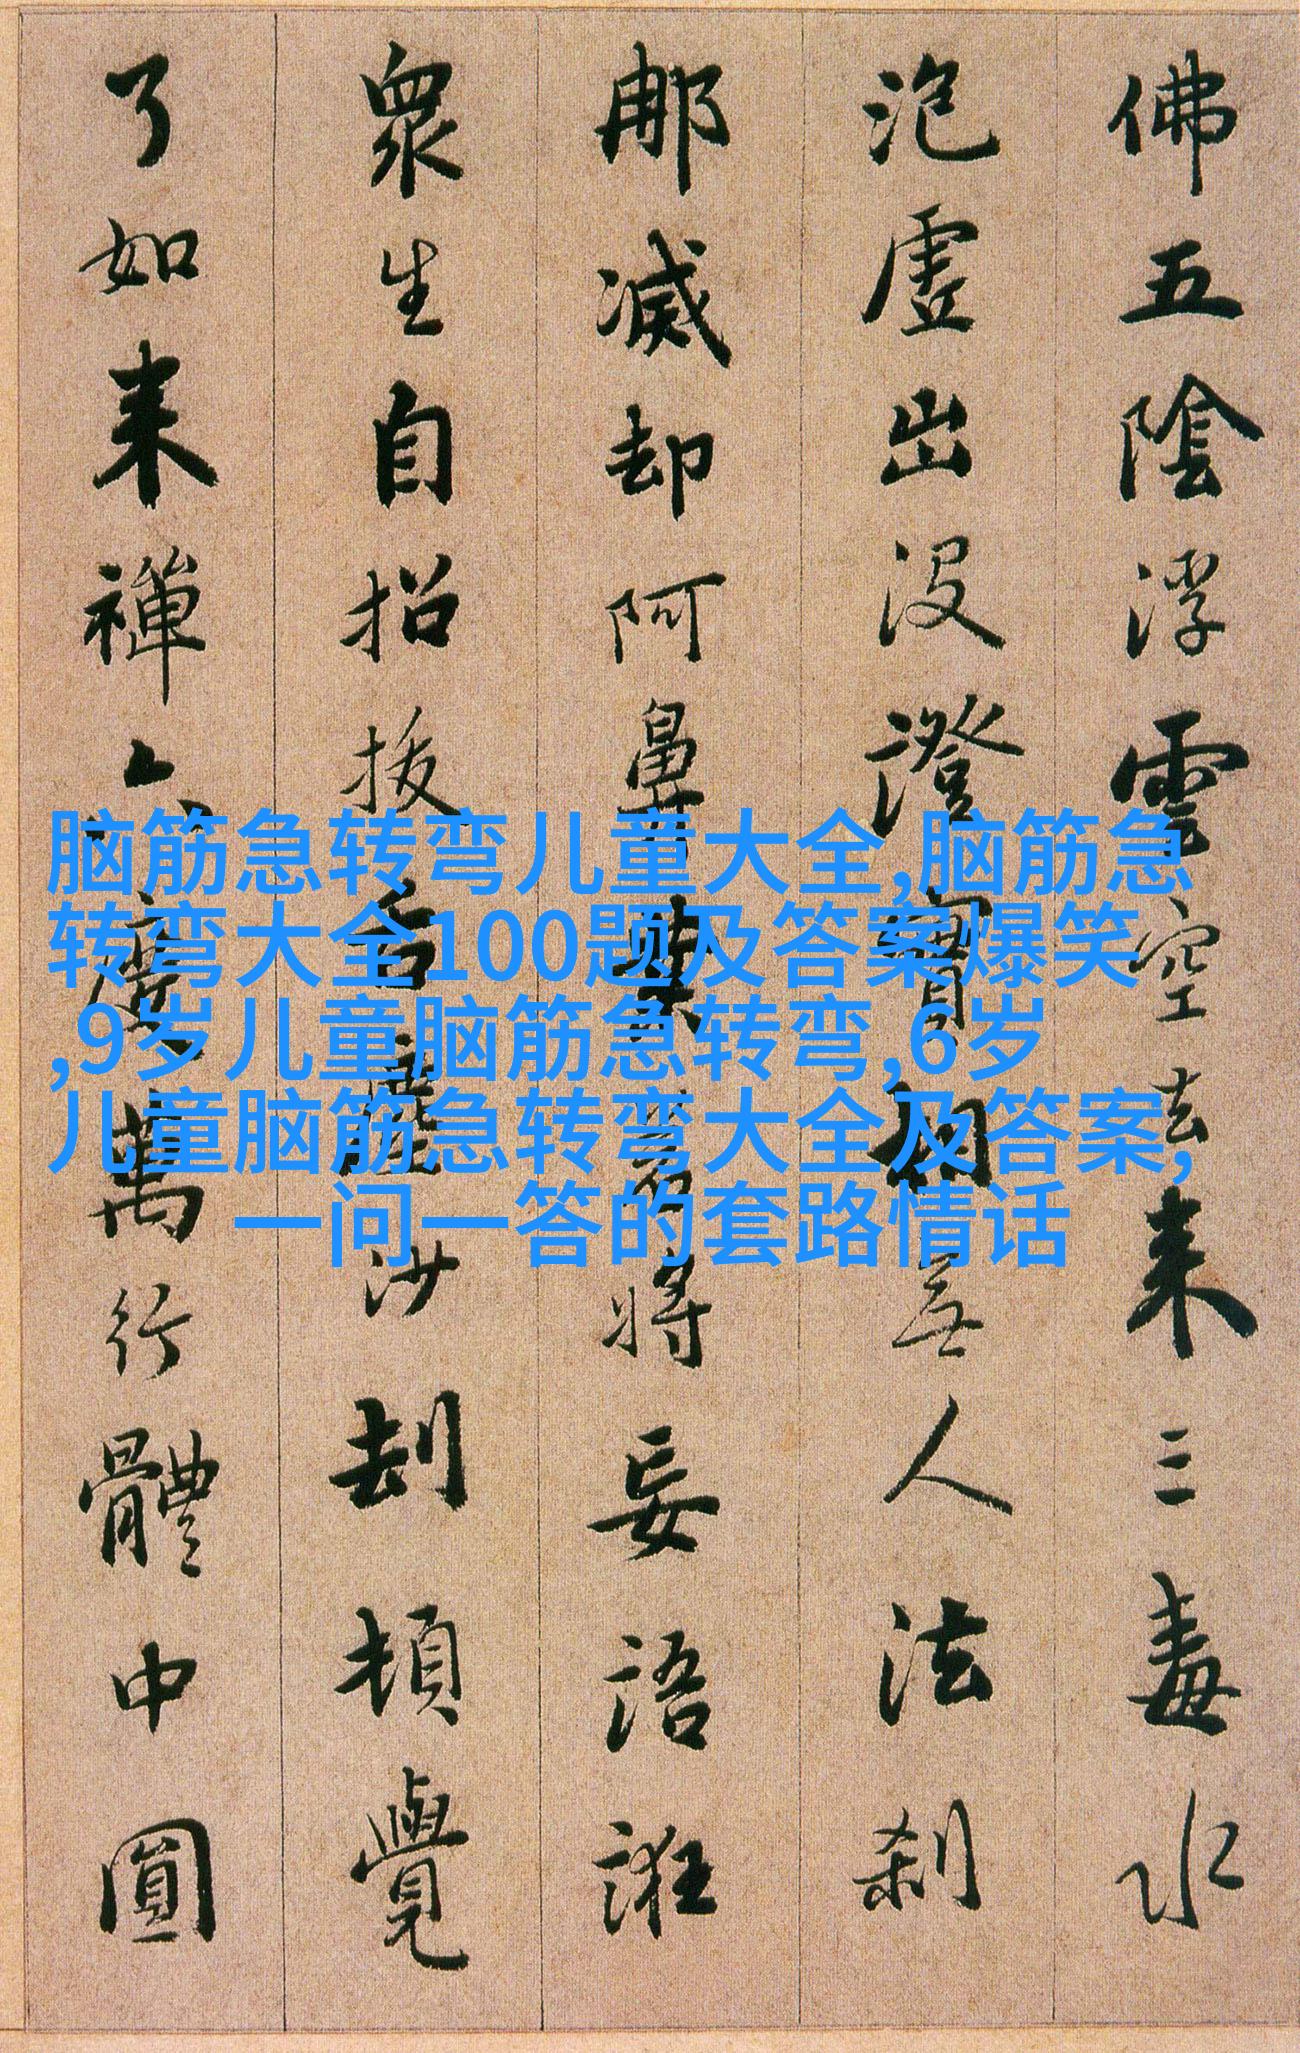 佛五陰浮雲空去来三毒水
泡虚出没證實相無人法刹
那滅却阿鼻業若將妄語誑
衆生自招拔舌塵沙劫頓覺
了如来禪六度萬行體中圓
脑筋急转弯儿童大全,脑筋急
转弯大全100题及答案爆笑
,9岁儿童脑筋急转弯,6岁
儿童脑筋急转弯大全及答案,
一问一答的套路情话